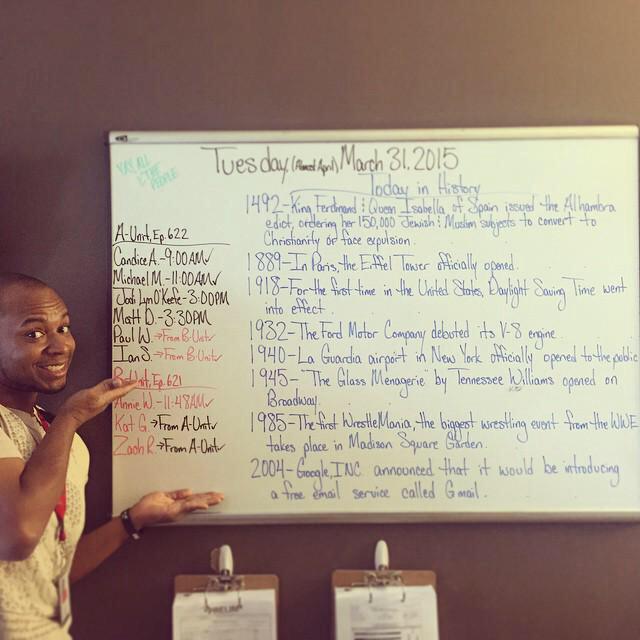 YAY ALL
THE
PEOPLE
Tuesday, (Almost April) March 31, 2015
Today in History
1492-King Ferdinand & Queen Isabella of Spain issued the Alhambra
edict, ordering her 150,000 Jewish & Muslim subjects to convert to
Christianity or face expulsion.
1889-In Paris, the Eiffel Tower officially opened.
1918-For the first time in the United States, Daylight Saving Time went
into effect.
1932-The Ford Motor Company debuted its V-8 engine.
1940-La Guardia airport in New York officially opened to the public
1945-"The Glass Menagerie" by Tennessee Williams opened on
Broadway.
1985-The first WrestleMania, the biggest wrestling event from the WWE
takes place in Madison Square Garden.
2004-Google, INC announced that it would be introducing
a free email service called Gmail.
A-Unit, Ep. 622
Candice A.-9:00AM✓
Michael M.-11:00AM✓
Jodi Lyn O'Keefe-3:00PM
Matt D.-3:30PM
Paul W.→From B-Unit✓
Ian S.→From B-Unit✓
B-Unit, Ep. 621
Annie W.-11:48AM✓
Kat G.→From A-Unit✓
Zach R.→From A-Unit✓